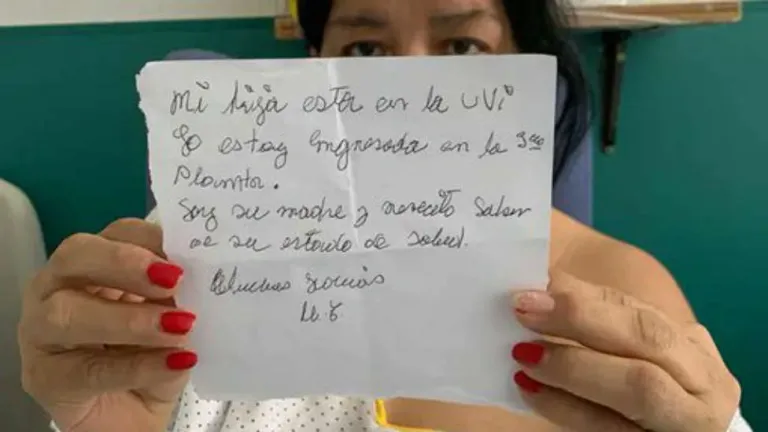 Mi hija esta en la UVi
Yo estoy Ingresada en la 3era
Planta.
Soy su madre y necesito Saber
de su estado de salud.
Muchas Gracias
M.G.